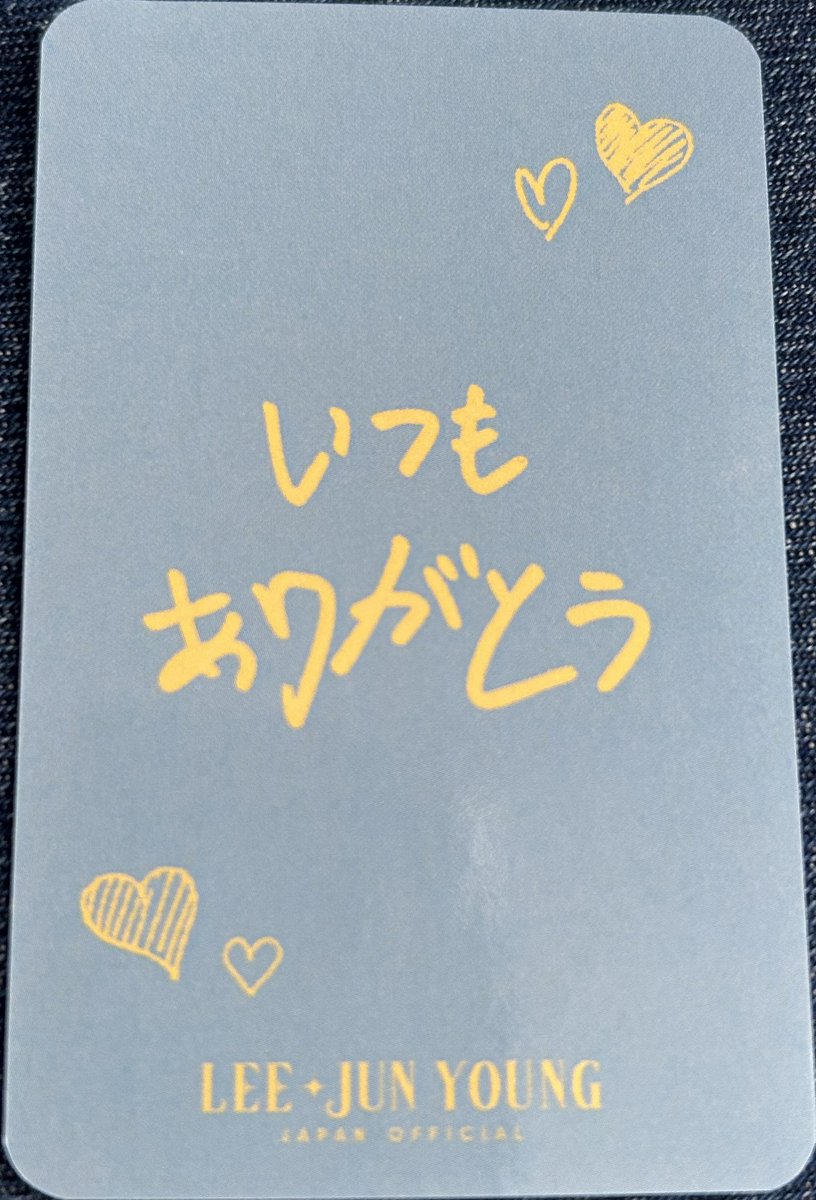 いつも
ありがとう
LEE✦JUN YOUNG
JAPAN OFFICIAL